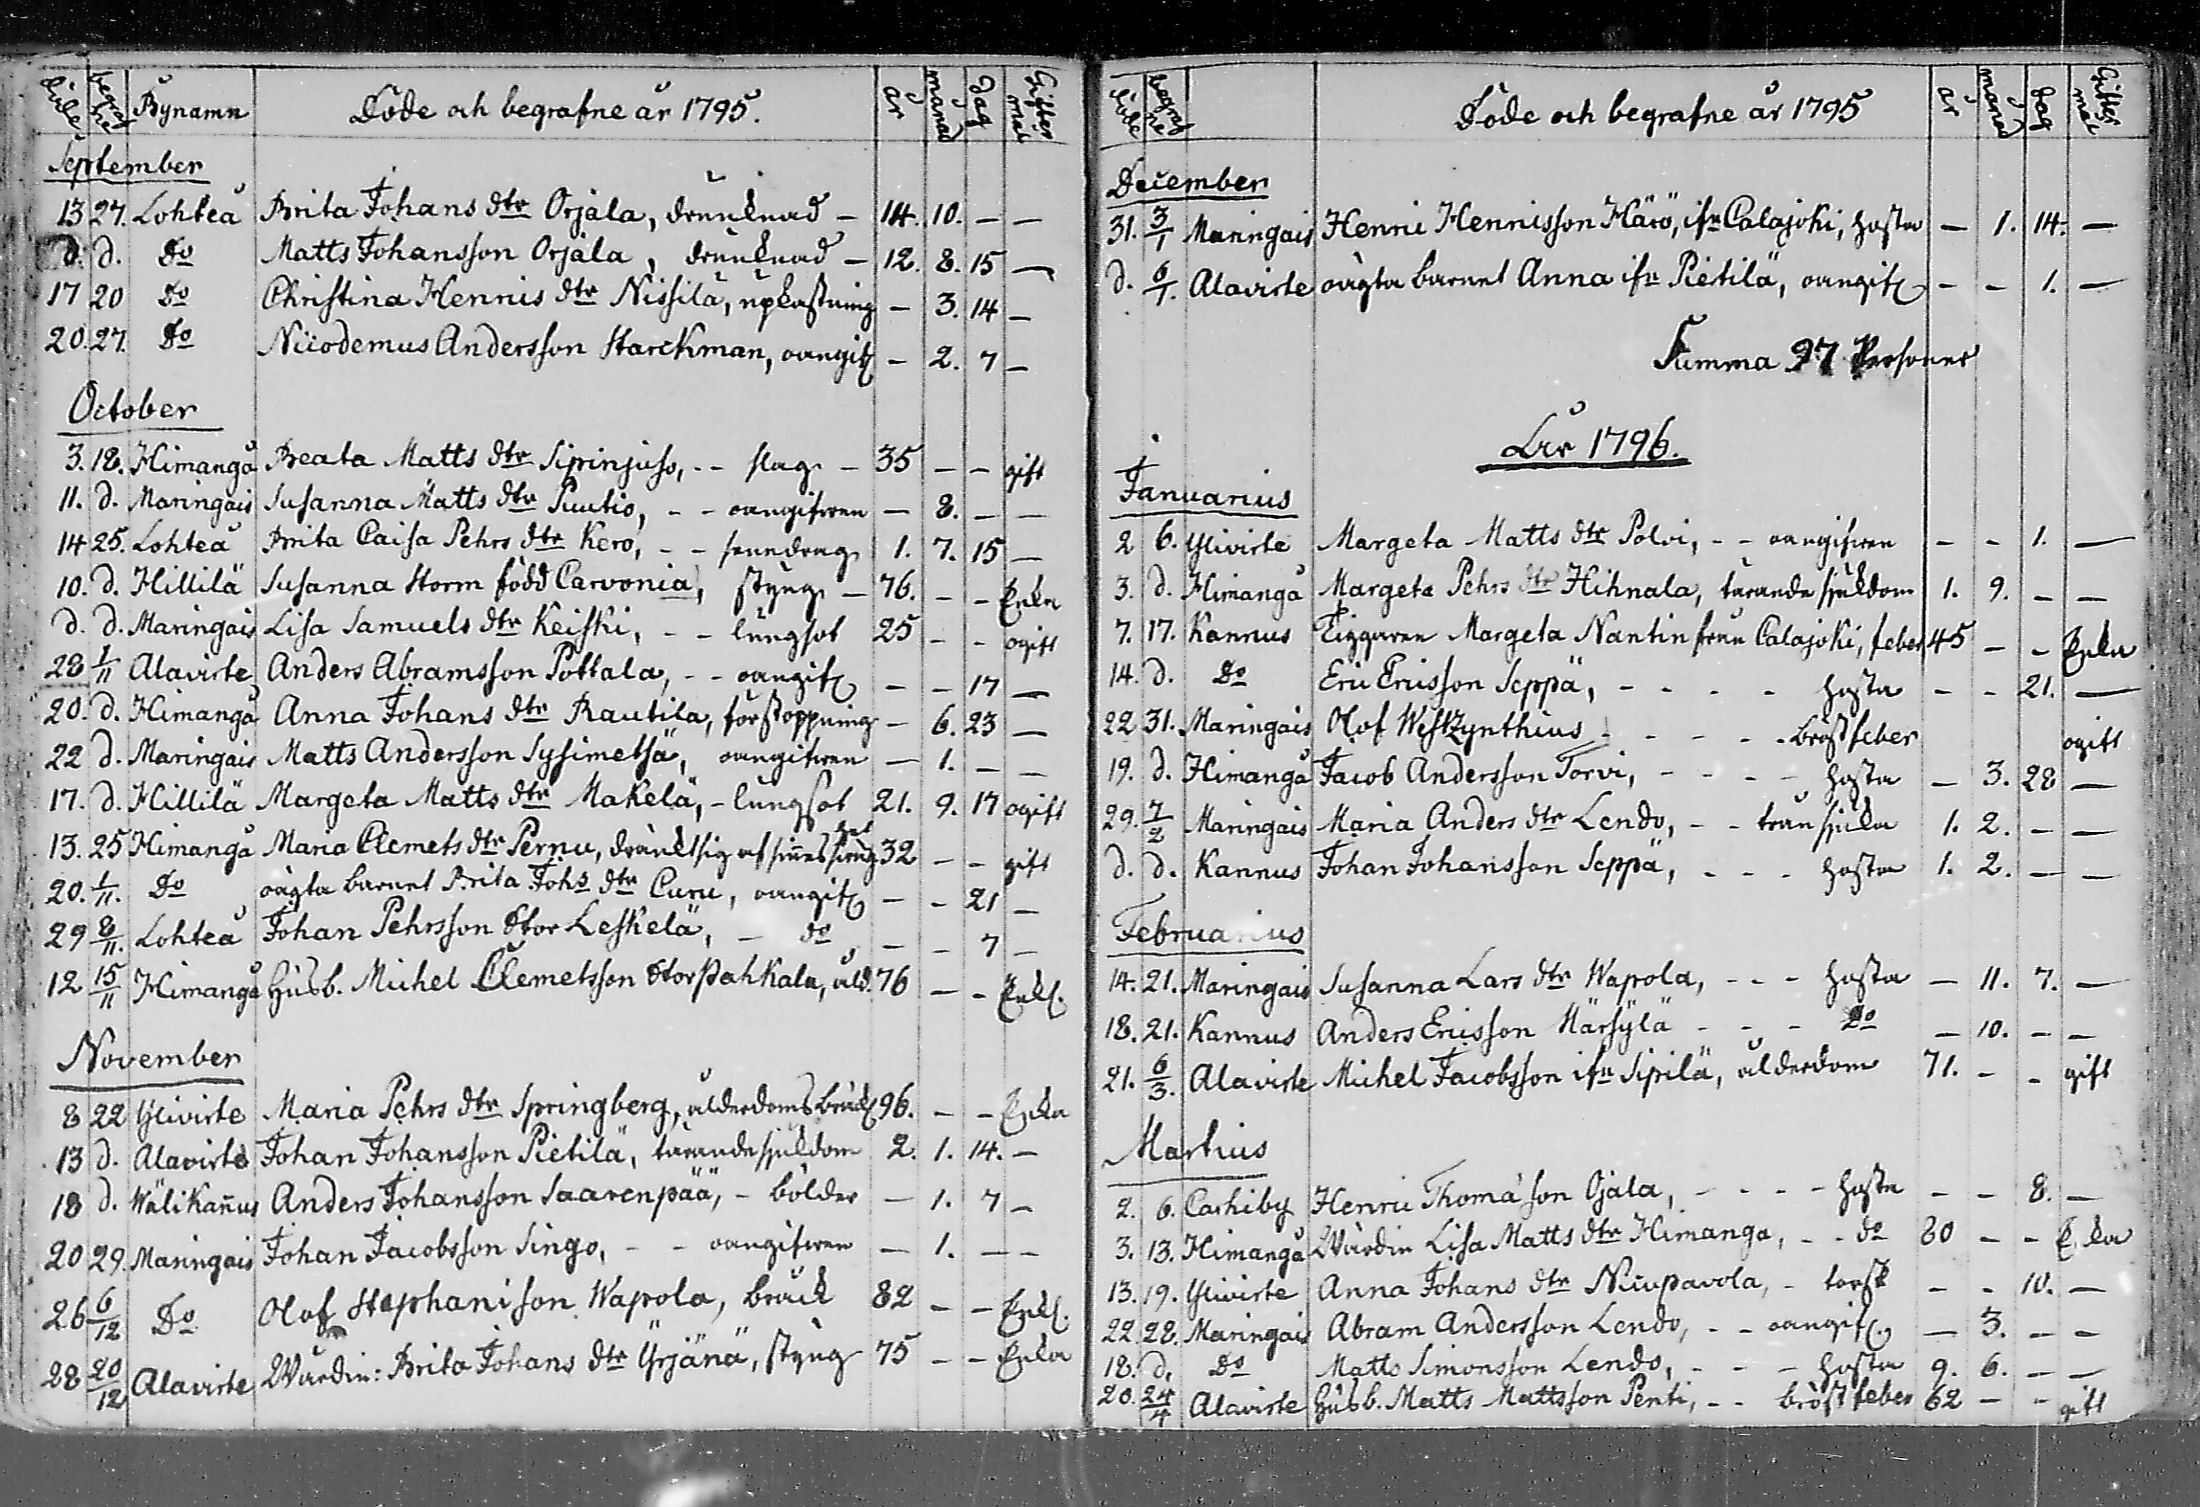 Döde begrafne Bynamn Döde och begrafne år 1795. år månad dag Giftermål
September
13 27. Lohteå Brita Johans dtr Orjala, drunknad – 14. 10. – –
d. d. Do Matts Johansson Orjala, drunknad – 12. 8. 15 –
17 20 Do Christina Hennis dtr Nissilä, upkastning – 3. 14 –
20. 27. Do Nicodemus Andersson Starckman, oangif – 2. 7 –
October
3. 18. Himangå Beata Matts dtr Siprinjuss, – – slag – 35 – – gift
11. d. Maringais Susanna Matts dtr Puutio, – – oangifven – 8. – –
14 25. Lohteå Brita Caisa Pehrs dtr Kero, – – 1. 7. 15 –
10. d. Hillilä Susanna Storm född Carvonia, styng – 76. – – Enka
d. d. Maringais Lisa Samuels dtr Keiski, – – lungsot 25 – – ogift
28 1/11 Alavirte Anders Abramsson Pottala, – – oangif – – 17 –
20. d. Himangå Anna Johans dtr Rautila, förstoppning – 6. 23 –
22 d. Maringais Matts Andersson Sysimetsä, oangifven – 1. – –
17. d. Hillilä Margeta Matts dtr Makelä, – lungsot 21. 9. 17 ogift
13. 25 Himangå Maria Clemets dtr Pernu, dränkt sig af sinnes 32 – – gift
20. 1/11. Do oägta barnet Brita Johs dtr Curu, oangif – – 21 –
29 8/11. Lohteå Johan Pehrsson Stor Leskelä, – do – – 7 –
12 15/11 Himangå Husb. Michel Clemetsson Storpahkala, åld. 76 – – Enkl.
November
8 22 Ylivirte Maria Pehrs dtr Springberg, ålderdoms bräck 96. – – Enka
13 d. Alavirte Johan Johansson Pietilä, tärande sjukdom 2. 1. 14. –
18 d. Wälikan̄us Anders Johansson Saarenpää, – bölder – 1. 7 –
20 29. Maringais Johan Jacobsson Singo, – – oangifven – 1. – –
26 6/12 Do Olof Stephanisson Wapola, bräck 82 – – Enkl.
28 20/12 Alavirte Wärdin: Brita Johans dtr Yrjänä, styng 75 – – Enka
Döde begrafne Döde och begrafne år 1795 år månad dag Giftermål
December
31. 3/1 Maringais Henric Hennisson Härö, ifn Calajoki, hosta – 1. 14. –
d. 6/1. Alavirte oägta barnet Anna ifn Pietilä, oangif – – 1. –
Summa 97 Personer
År 1796.
Januarius
2 6. Ylivirte Margeta Matts dtr Polvi, – – oangifven – – 1. –
3. d. Himangå Margeta Pehrs dtr Hihnala, tärande sjukdom 1. 9. – –
7. 17. Kannus Tiggaren Margeta Nantin från Calajoki, feber 45 – – Enka
14. d. Do Eric Ericsson Seppä, – – – – hosta – – 21. –
22 31. Maringais Olof Westzynthius – – – – bröstfeber ogift
19. d. Himangå Jacob Andersson Torvi, – – – – hosta – 3. 28 –
29. 7/2 Maringais Maria Anders dtr Lendo, – – transjuka 1. 2. – –
d. d. Kannus Johan Johansson Seppä, – – – hosta 1. 2. – –
Februarius
14. 21. Maringais Susanna Lars dtr Wapola, – – – hosta – 11. 7. –
18. 21. Kannus Anders Ericsson Märsylä – – – Do – 10. – –
21. 6/3. Alavirte Michel Jacobsson ifn Sipilä, ålderdom 71. – – gift
Martius
2. 6. Carhiby Henric Thomasson Ojala, – – – – hosta – – 8. –
3. 13. Himangå Wärdin Lisa Matts dtr Himanga, – – do 80 – – Enka
13. 19. Ylivirte Anna Johans dtr Nicupavola, – torsk – – 10. –
22 28. Maringais Abram Andersson Lendo, – – oangif. – 3. – –
18. d. Do Matts Simonsson Lendo, – – – hosta 9. 6. – –
20. 24/4 Alavirte Husb. Matts Mattsson Penti, – – bröstfeber 62 – – gift